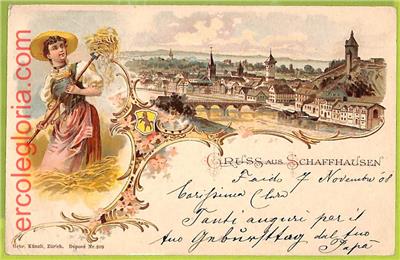 ercolegloria.com
GRUSS AUS SCHAFFHAUSEN
Faido 7 Novembr 08
Carissima Clara
Tanti auguri per il
tuo Geburtstag dal tuo
Papà
Gebr. Künzli, Zürich. Déposé Nr. 809